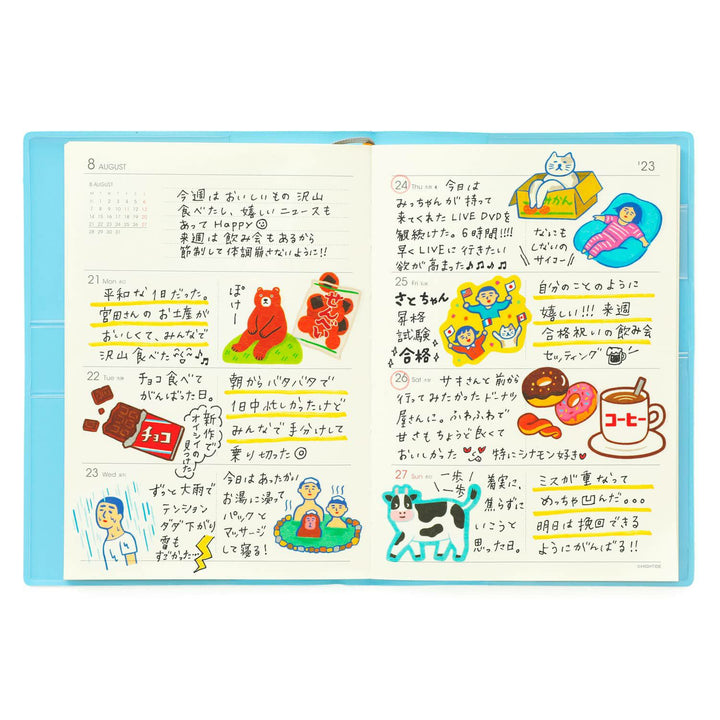 8 AUGUST
8 AUGUST
M T W T F S S
1 2 3 4 5 6
7 8 9 10 11 12 13
14 15 16 17 18 19 20
21 22 23 24 25 26 27
28 29 30 31
今週はおいしいもの沢山
食べたし、嬉しいニュースも
あってHappy
来週は飲み会もあるから
節制して体調崩さないように!!
21 Mon 先勝
平和な1日だった。
宮田さんのお土産が
おいしくて、みんなで
沢山食べた♪
ぽけー
せんべい
22 Tue 友引
チョコ食べて
がんばった日。
チョコ
新作で
オイシイの
見つけた!
朝からバタバタで
1日中忙しかったけど
みんなで手分けして
乗り切った
23 Wed 先負
ずっと大雨で
テンション
ダダ下がり
雷も
すごかった…
今日はあったかい
お湯に浸って
パックと
マッサージ
して寝る!
'23
24 Thu 仏滅
今日は
みっちゃんが持って
来てくれたLIVE DVDを
観続けた。6時間!!!!
早くLIVEに行きたい
欲が高まった♪♪♪♪
みかん
なにも
しないの
サイコー!
25 Fri 大安
さとちゃん
昇格
試験
合格
自分のことのように
嬉しい!!!来週
合格祝いの飲み会
セッティング
26 Sat 赤口
サキさんと前から
行ってみたかったドーナツ
屋さんに。ふわふわで
甘さもちょうど良くて
おいしかった
特にシナモン好き♥
コーヒー
27 Sun 先勝
一歩
一歩
着実に、
焦らずに
いこうと
思った日。
ミスが重なって
めっちゃ凹んだ。。。
明日は挽回できる
ようにがんばる!!
©HIGHTIDE